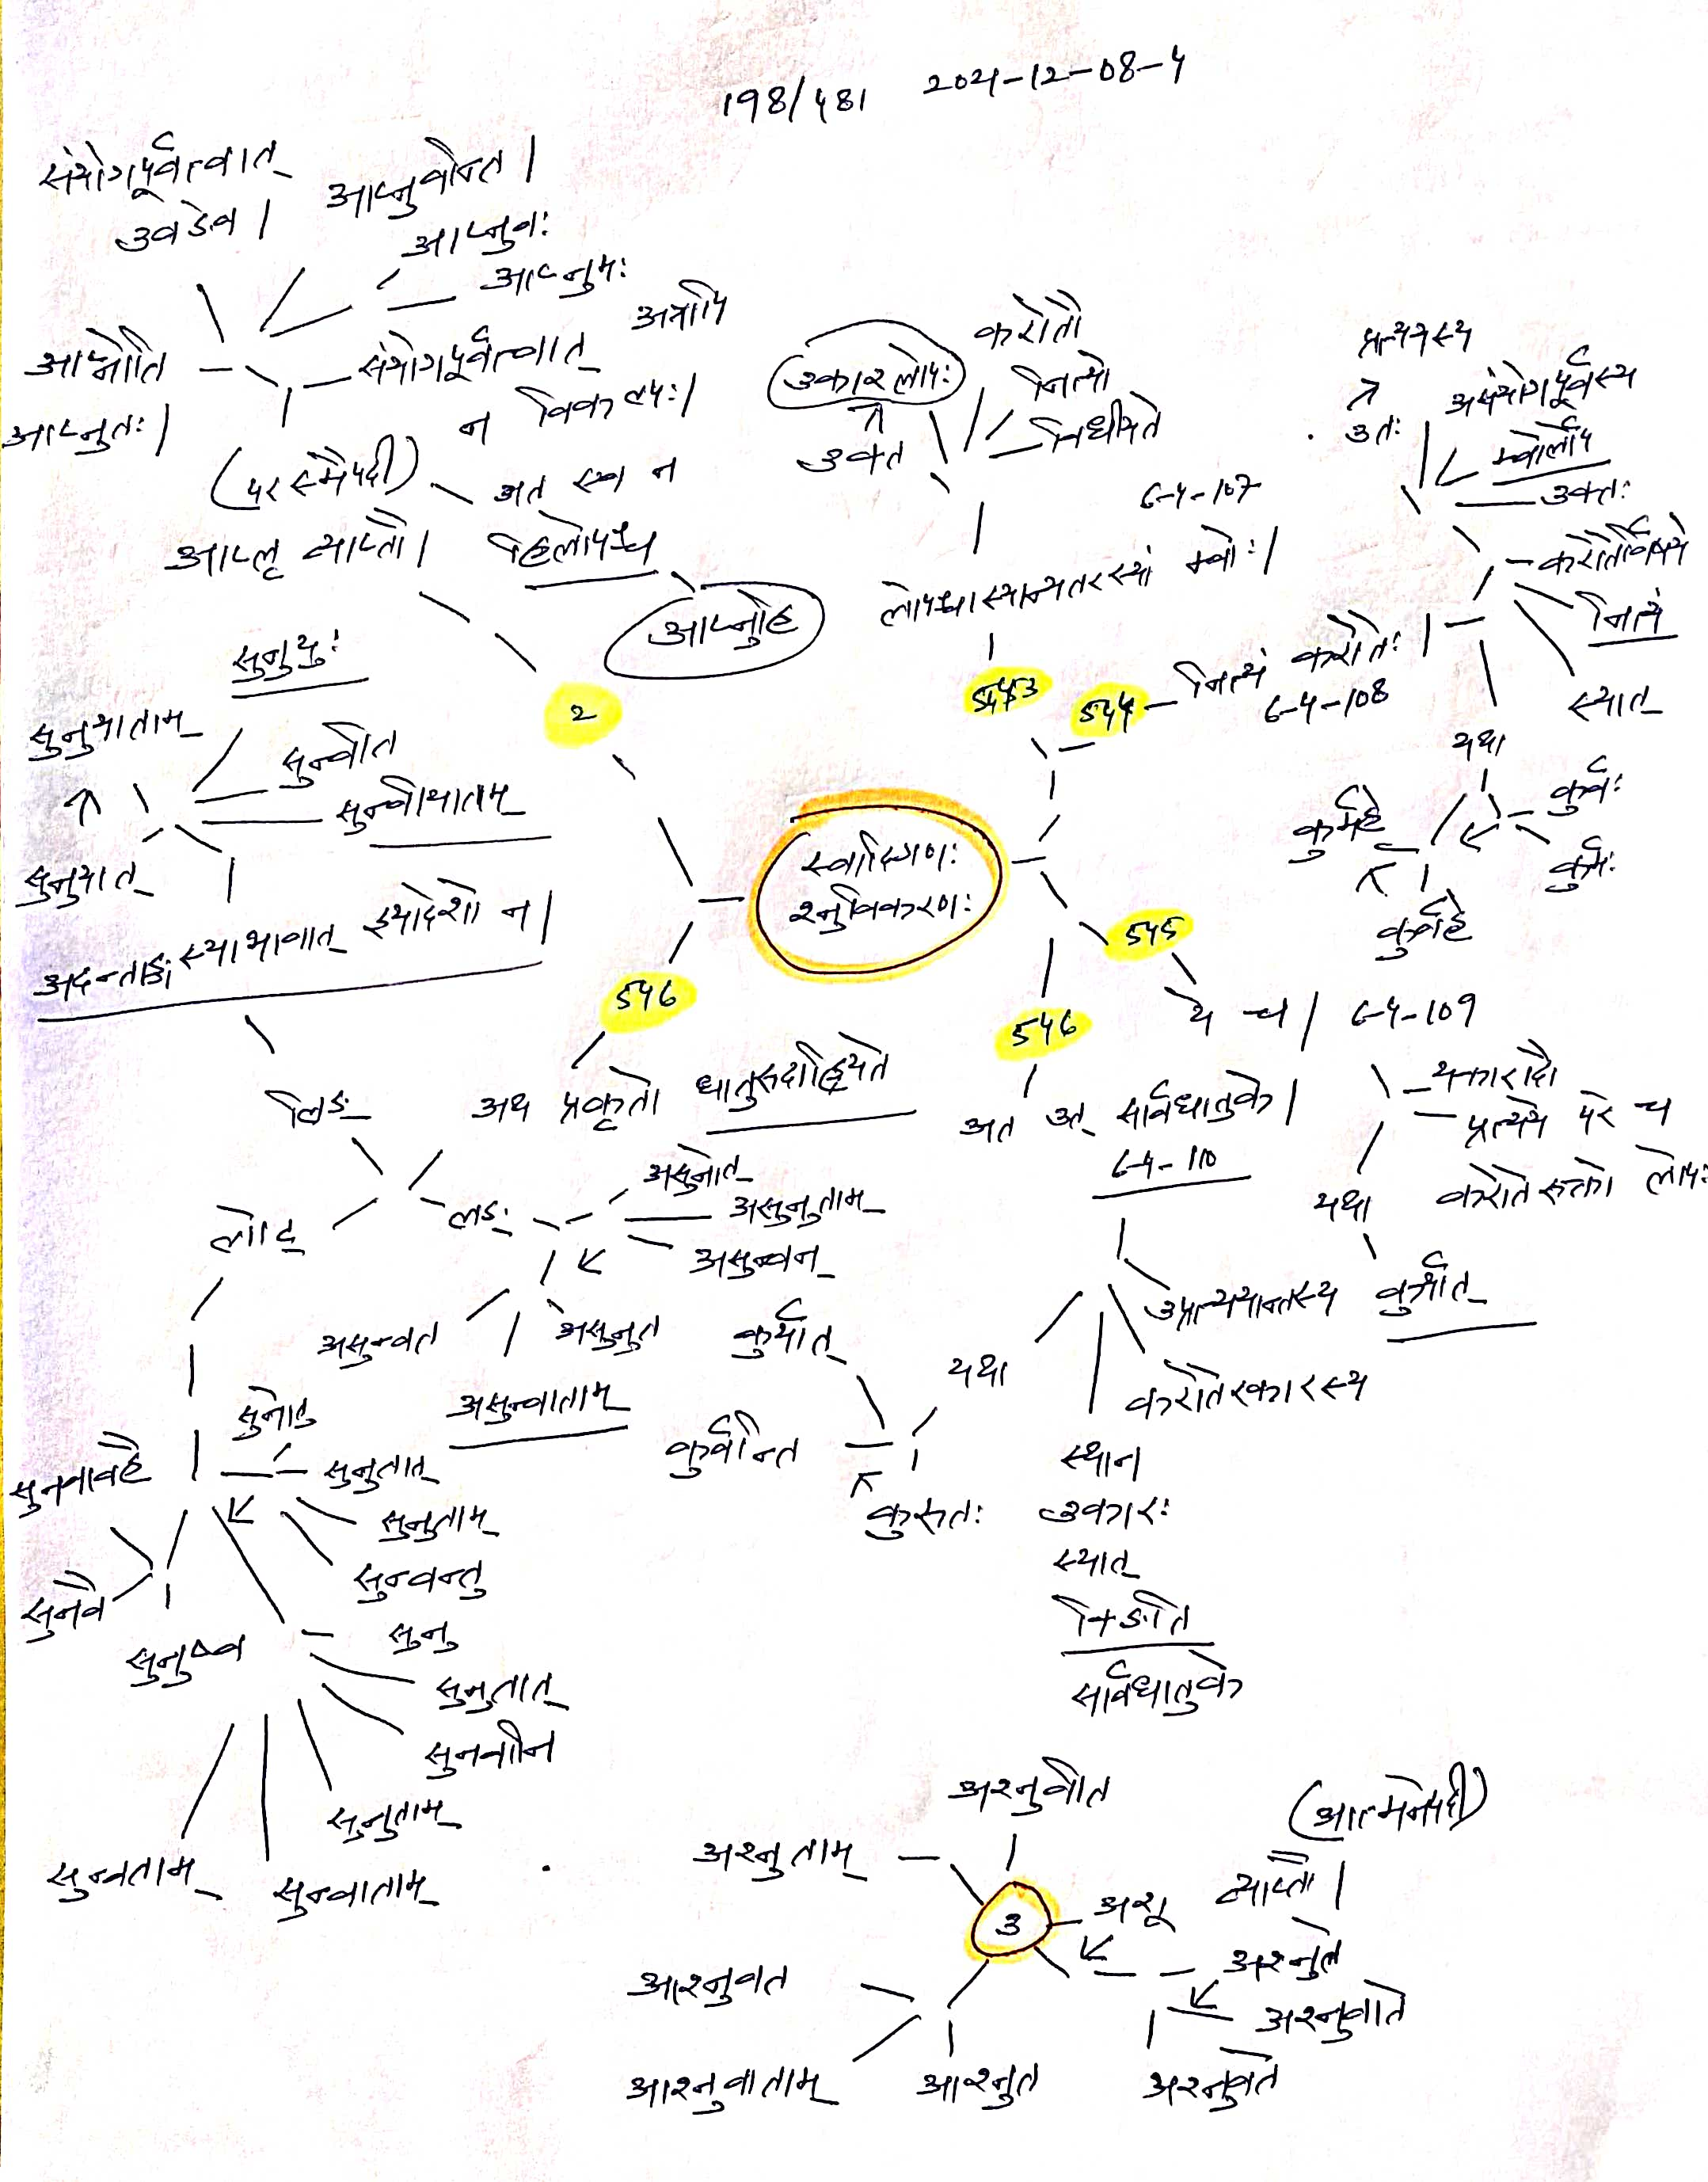 198/481 2021-12-08-4
संयोगपूर्वत्वात्
उवङेव।
आप्नुवन्ति।
आप्नुवः
आप्नुमः
आप्नोति
आप्नुतः।
संयोगपूर्वत्वात् अत्रापि
न विकल्पः।
(परस्मैपदी)
अत एव न
हिलोपश्च
आप्नुहि
आप्लृ व्याप्तौ।
2
उकारलोपः
उक्त
करोतौ
नित्यो
विधीयते
6-4-107
लोपश्चास्यान्यतरस्यां म्वोः।
543
544
नित्यं करोतेः।
6-4-108
प्रत्ययस्य
उतः
असंयोगपूर्वस्य
म्वोर्लोप
उक्तः
करोतेर्विषये
नित्यं
स्यात्
यथा
कुर्वः
कुर्मः
कुर्महे
कुर्वहे
सुनुयुः
सुनुयाताम्
सुन्वीत
सुन्वीयाताम्
सुनुयात्
अदन्ताङ्गस्याभावात् इयादेशो न।
स्वादिगणः
श्नुविकरणः
545
ये च। 6-4-109
यकारादौ
प्रत्यये परे च
करोतेरुतो लोपः
यथा
कुर्यात्
546
अथ प्रकृतो धातुरुदाह्रियते
546
अत उत् सार्वधातुके।
6-4-110
उप्रत्ययान्तस्य
करोतेरकारस्य
स्थाने
उकारः
स्यात्
क्ङिति
सार्वधातुके
यथा
कुर्यात्
कुर्वन्ति
कुरुतः
लिङ्
लोट्
लङ्
असुनोत्
असुनुताम्
असुन्वन्
असुनुत
असुन्वत
असुन्वाताम्
सुनोतु
सुनुतात्
सुनुताम्
सुन्वन्तु
सुनवावहै
सुनवै
सुनुष्व
सुनु
सुनुतात्
सुनवानि
सुनुताम्
सुन्वाताम्
सुन्वताम्
अश्नुवीत
(आत्मनेपदी)
अश्नुताम्
3
अशू व्याप्तौ।
अश्नुते
अश्नुवाते
अश्नुवते
आश्नुवत
आश्नुवाताम्
आश्नुत